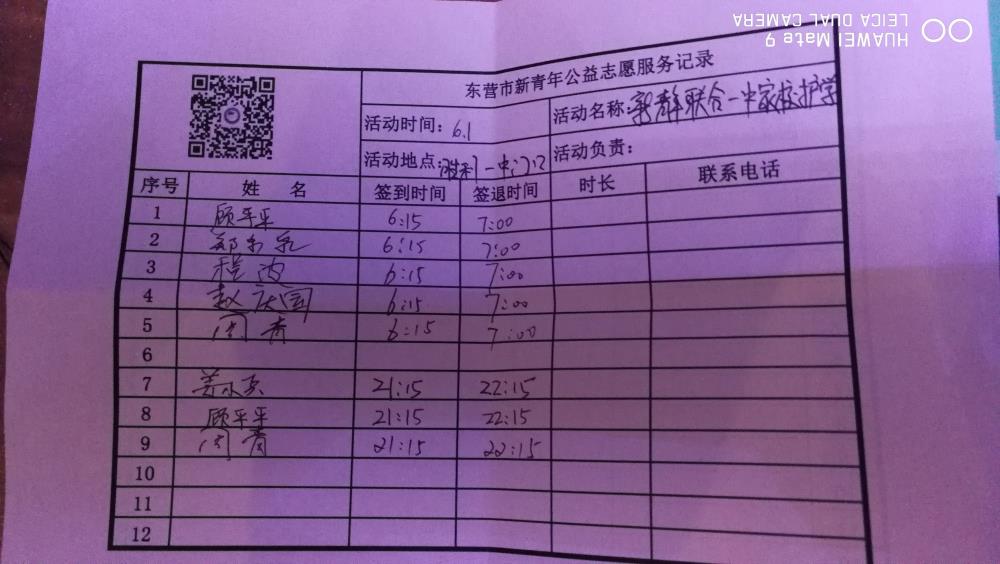 东营市新青年公益志愿服务记录
活动时间：6.1
活动名称：联合一中家校护学
活动地点：胜利一中门口
活动负责：
序号 姓 名 签到时间 签退时间 时长 联系电话
1 顾平平 6:15 7:00
2 郑 6:15 7:00
3 程波 6:15 7:00
4 赵庆国 6:15 7:00
5 闫青 6:15 7:00
6
7 姜 21:15 22:15
8 顾平平 21:15 22:15
9 闫青 21:15 22:15
10
11
12
HUAWEI Mate 9
LEICA DUAL CAMERA